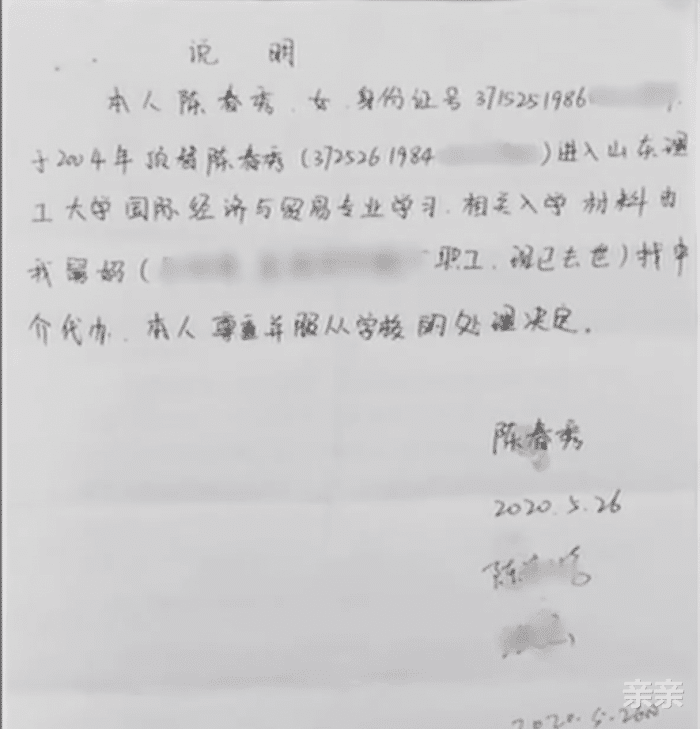 说 明
本人陈春秀、女、身份证号3715251986
于2004年顶替陈春秀(3725261984 )进入山东理
工大学国际经济与贸易专业学习.相关入学材料由
我舅妈( 职工、现已去世)找中
介代办.本人尊重并服从学校的处理决定.
陈春秀
2020.5.26
陈
2020.5.26
亲亲